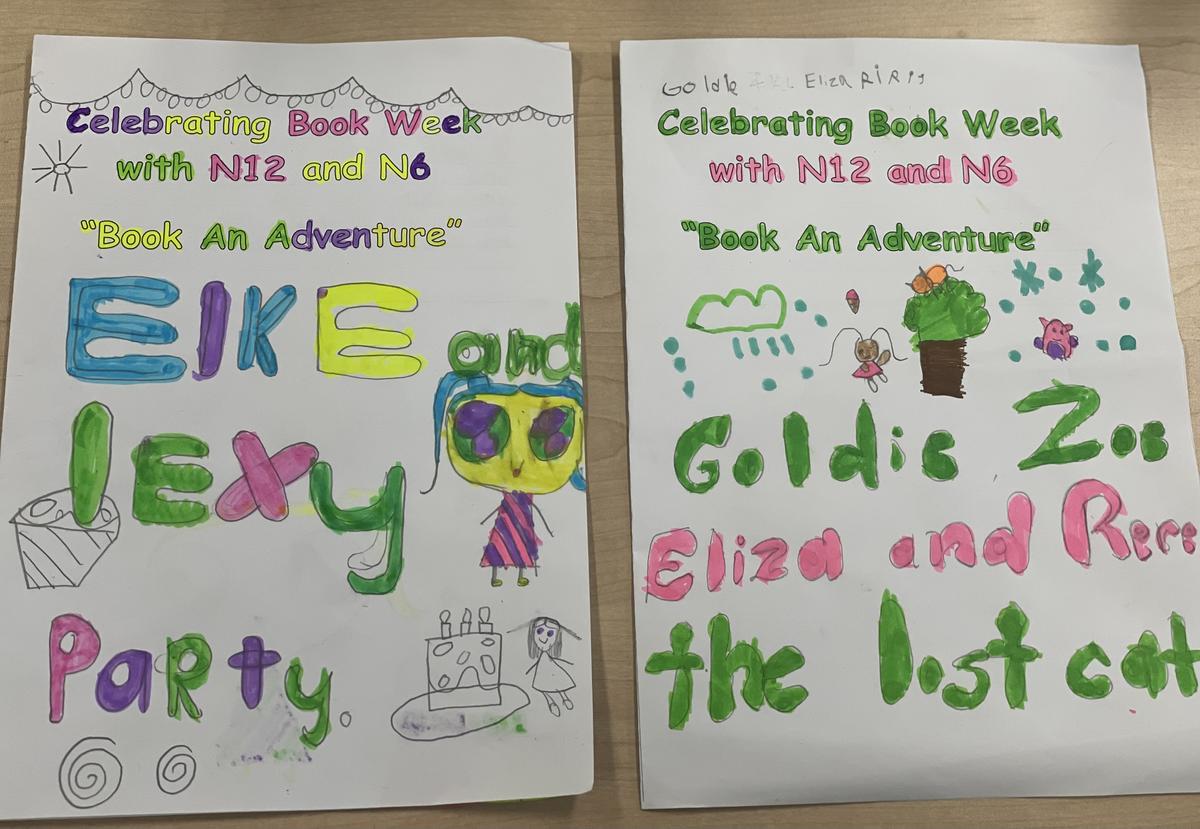 Celebrating Book Week
with N12 and N6
"Book An Adventure"
EIKE and
lExy
PaRty.
Goldie Eliza RiRi
Celebrating Book Week
with N12 and N6
"Book An Adventure"
Goldie Zoe
Eliza and Rere
the lost cat